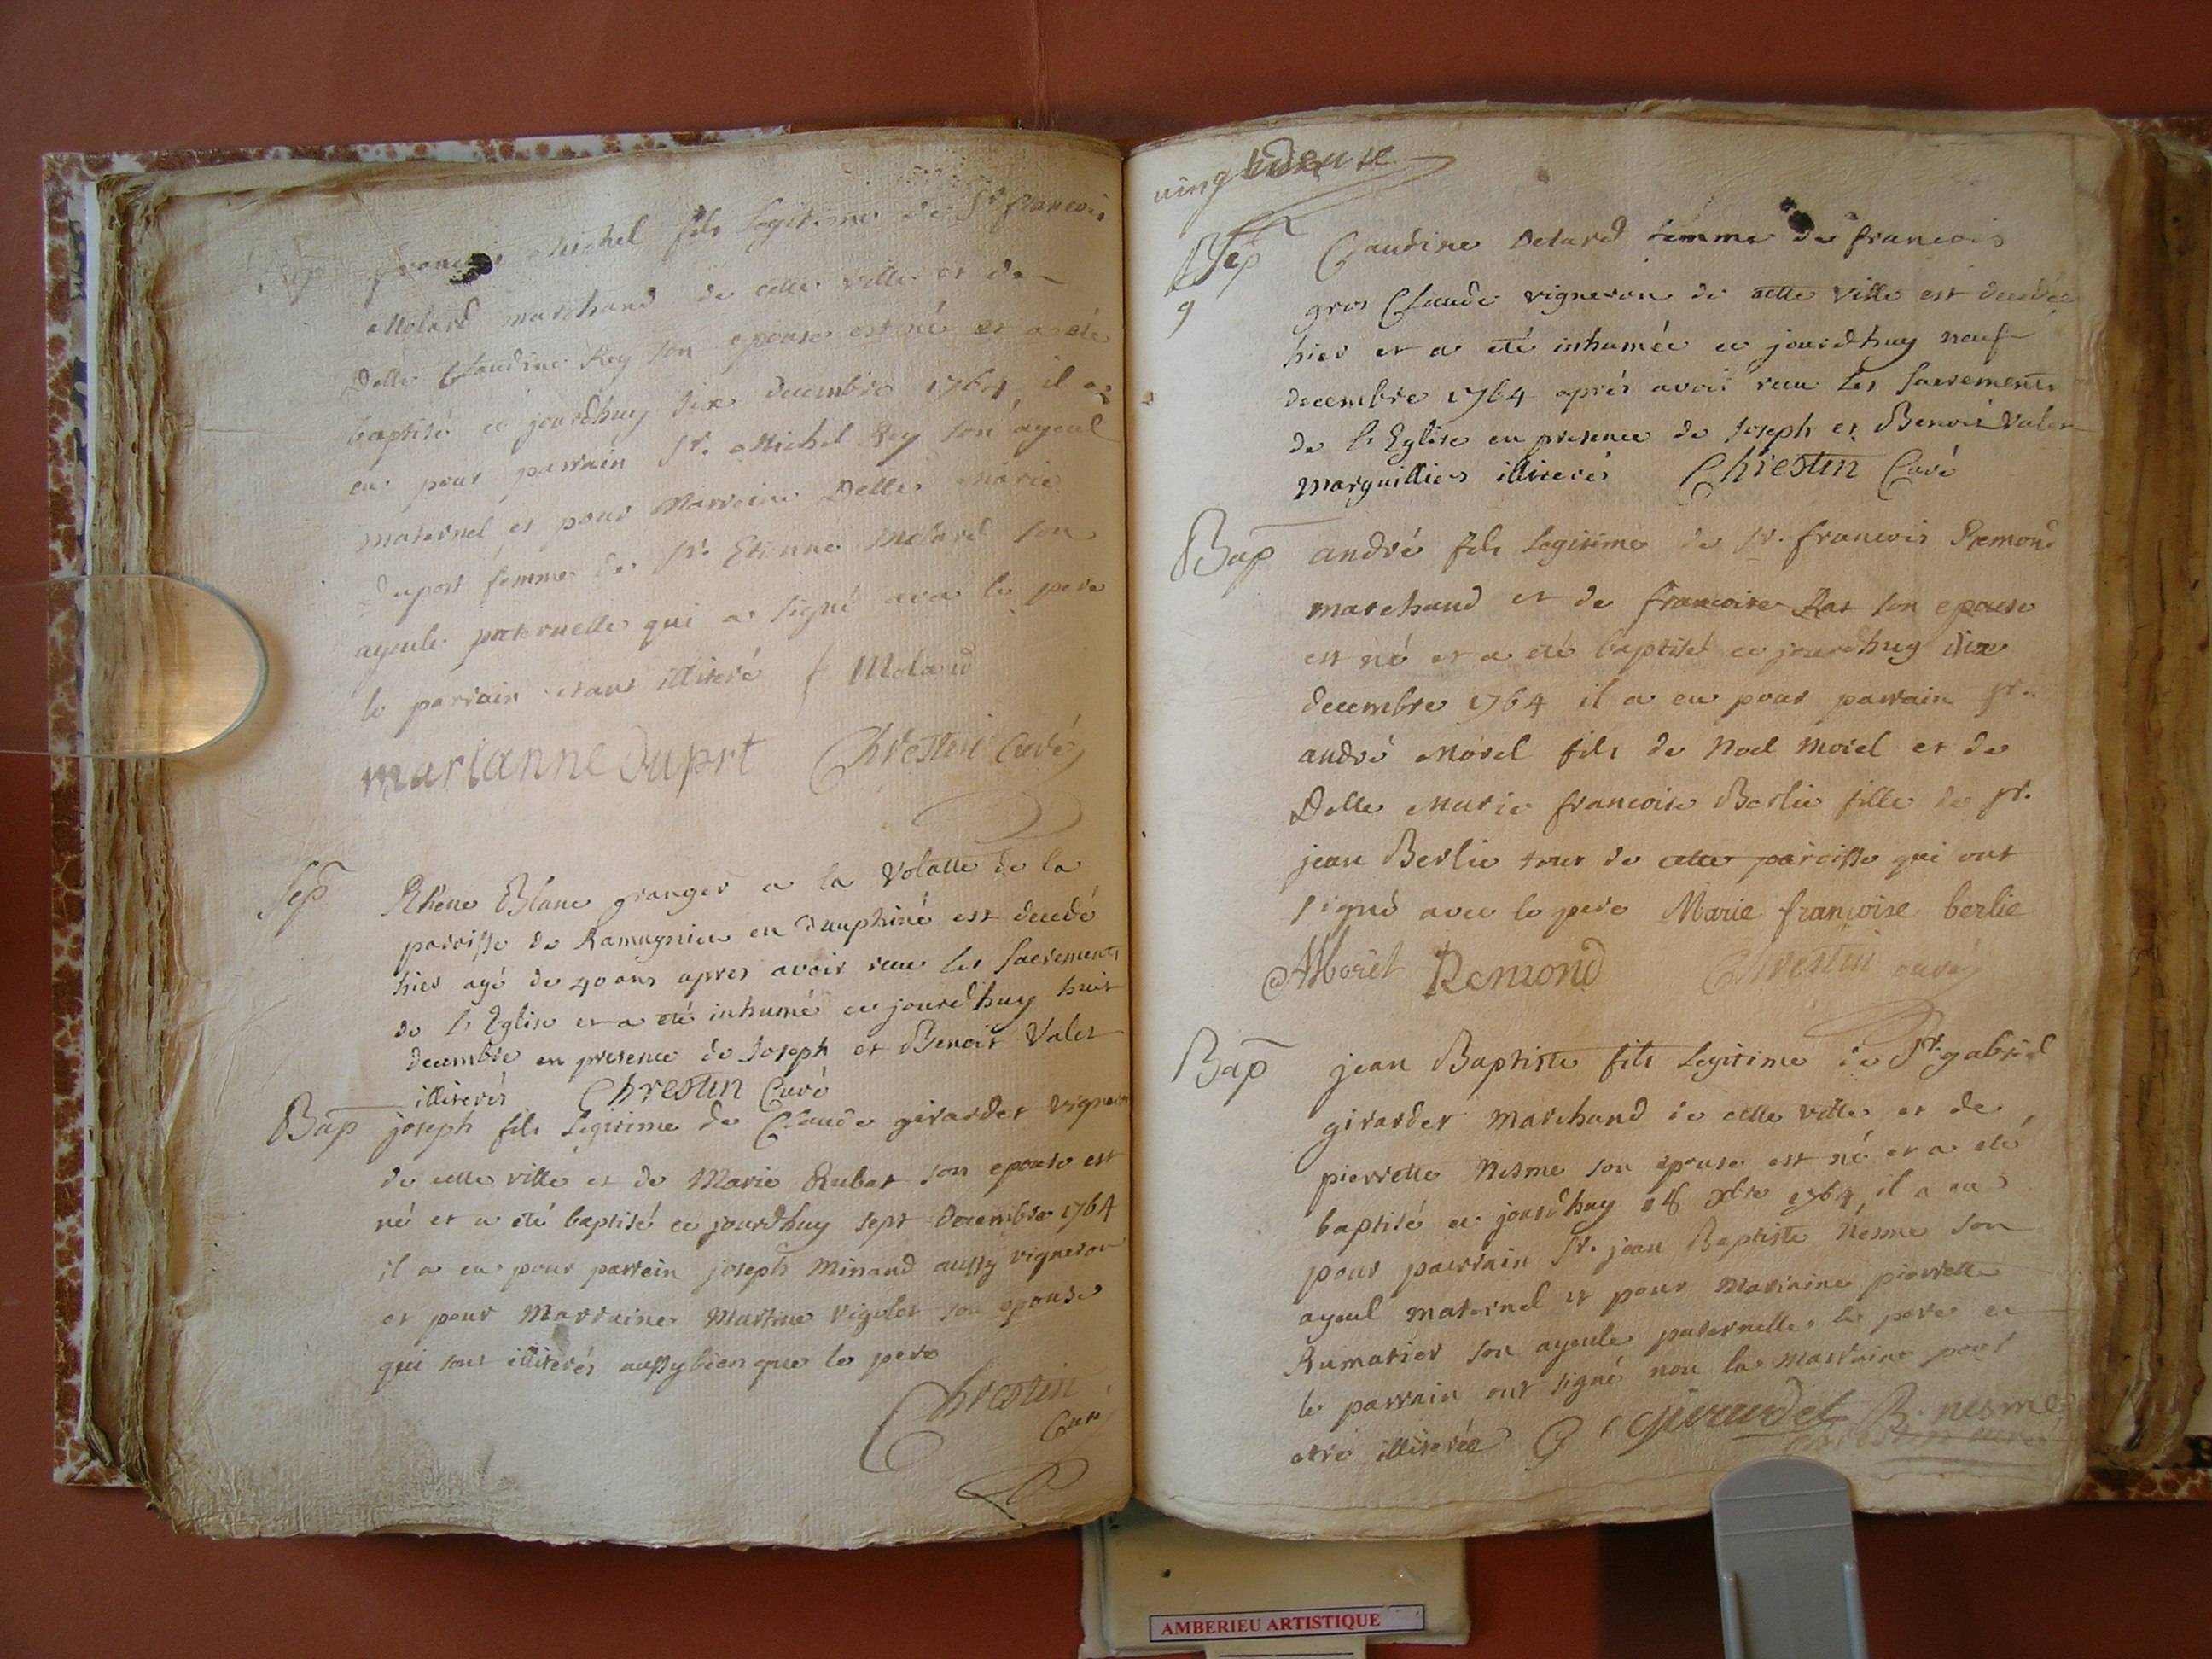 Bap francois Michel fils legitime de Sr francois
Molard marchand de cette ville et de
Delle Claudine Rey son epouse est né et a eté
baptisé ce jourdhuy six decembre 1764 il a
eu pour parrain Sr. Michel Rey son ayeul
maternel et pour Marraine Delle Marie
Duport femme de Sr. Etienne Molard son
ayeule paternelle qui a signé avec le pere
le parrain etant illiteré f Molard
marianne Duprt Chrestin Curé
Sep Blanc granger a la Volatte de la
paroisse de Ramugnieu en Dauphiné est decedé
hier agé de 40 ans apres avoir receu les Sacrements
de l'Eglise et a eté inhumé ce jourdhuy huit
decembre en presence de Joseph et Benoit Valet
illiterés Chrestin Curé
Bap joseph fils legitime de Claude girardet vigneron
de cette ville et de Marie Rubat son epouse est
né et a eté baptisé ce jourdhuy sept decembre 1764
il a eu pour parrein joseph Minand aussy vigneron
et pour Marraine Martine Vigolet son epouse
qui sont illiterés aussy bien que le pere
Chrestin
Curé
Sep Claudine Detard femme de francois
9 gros Claude vigneron de cette ville est decedée
hier et a eté inhumée ce jourdhuy neuf
decembre 1764 aprés avoir receu les Sacrements
de l'Eglise en presence de Joseph et Benoit Valet
marguilliers illiterés Chrestin Curé
Bap andré fils legitime de Sr. francois Remond
marchand et de francoise Rat son epouse
est né et a eté baptisé ce jourdhuy dix
decembre 1764 il a eu pour parrain Sr.
andré Morel fils de Noel Morel et de
Delle Marie francoise Berlie fille de Sr.
jean Berlie tous de cette paroisse qui ont
signé avec le pere Marie françoise berlie
AMorel Remond Chrestin curé
Bap jean Baptiste fils legitime de Sr. gabriel
girardet Marchand de cette ville et de
pierrette Nesme son epouse est né et a eté
baptisé ce jourdhuy 18 xbre 1764 il a eu
pour parrain Sr. jean Baptiste Nesme son
ayeul maternel et pour Marraine pierrette
Rumatier son ayeule paternelle le pere et
le parrain ont signé non la marraine pour
etre illiterée G girardet B. nesme
AMBERIEU ARTISTIQUE